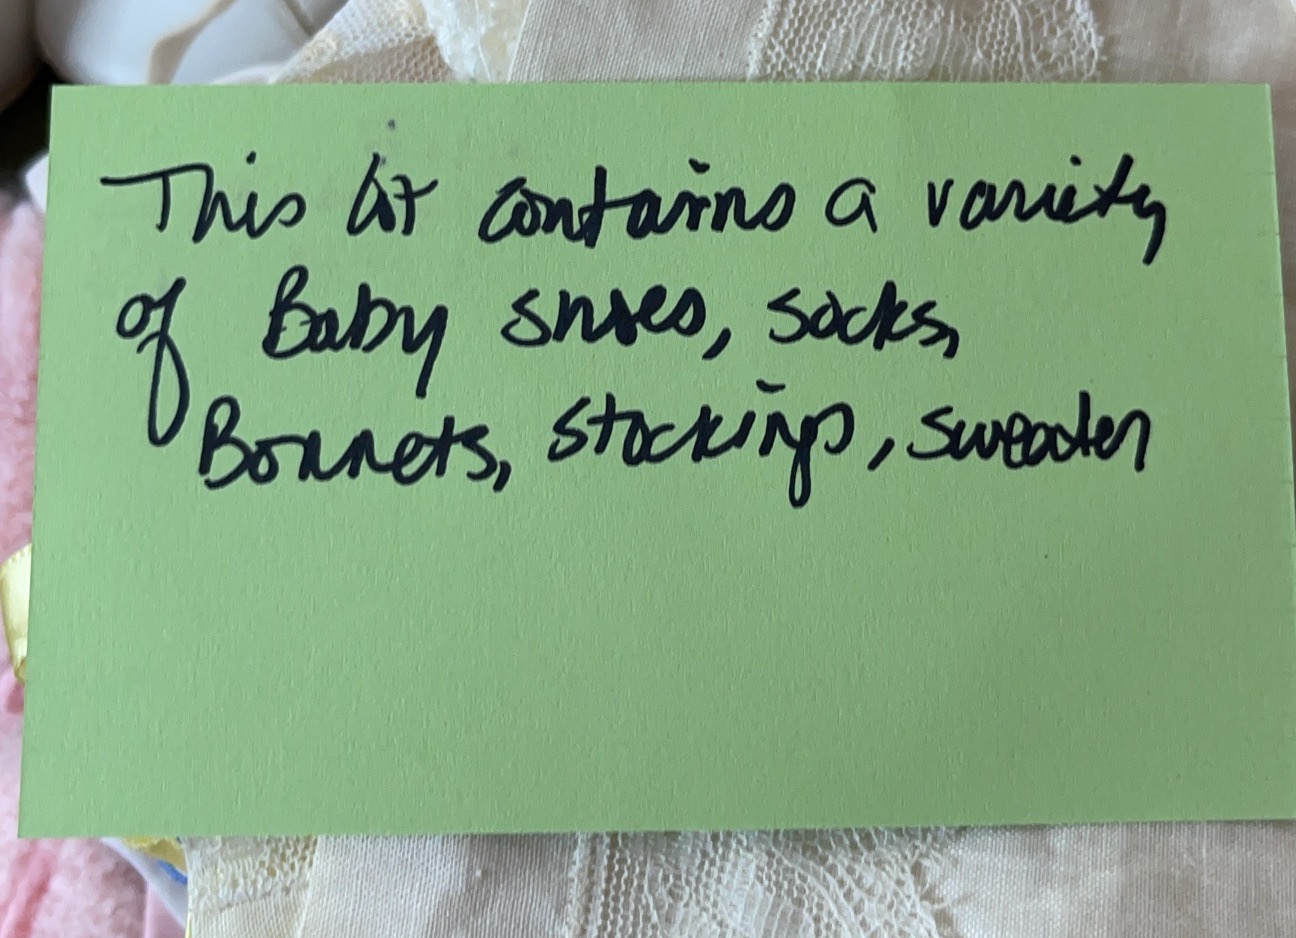 This lot contains a variety
of Baby shoes, socks,
Bonnets, stockings, sweater